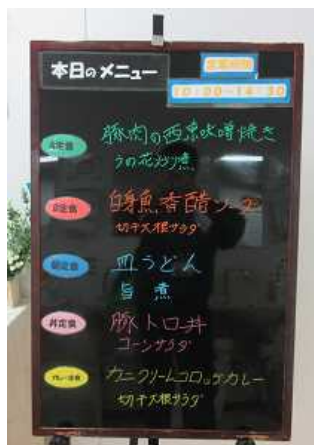 本日のメニュー
営業時間
10:00~14:30
A定食
豚肉の西京味噌焼き
うの花炒煮
B定食
白身魚香酢ソース
切干大根サラダ
麺定食
皿うどん
旨煮
丼定食
豚トロ丼
コーンサラダ
カレー定食
カニクリームコロッケカレー
切干大根サラダ